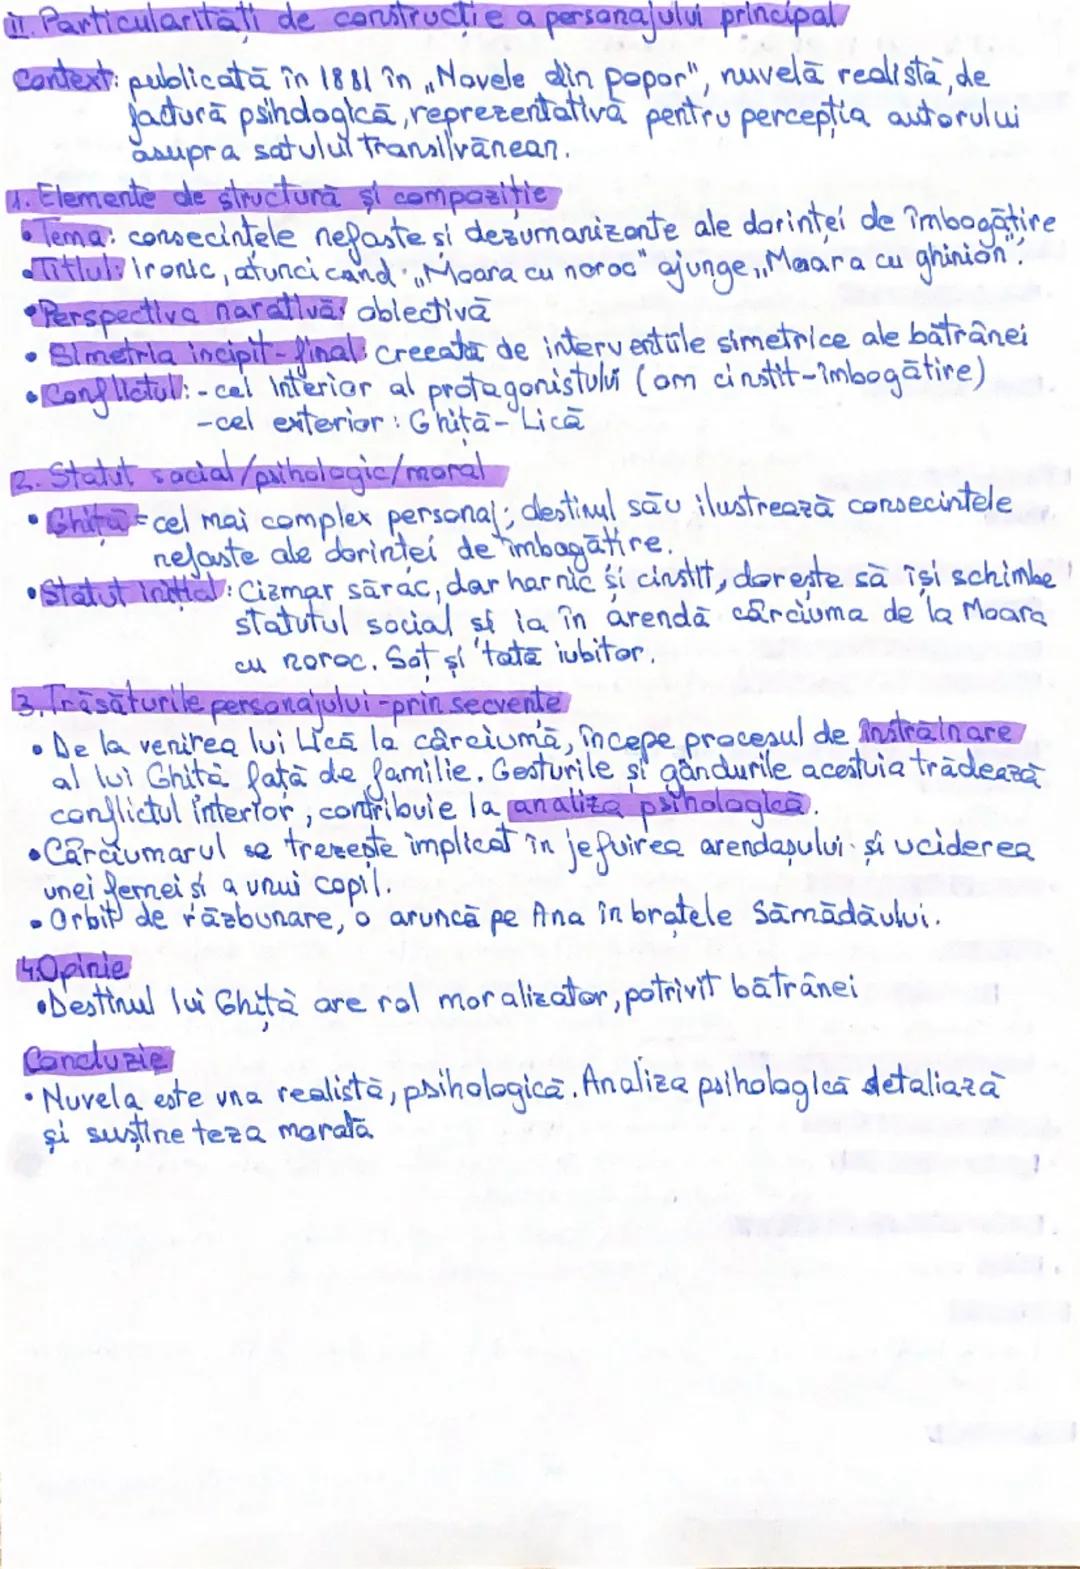 II. Particularități de construcție a personajului principal
Context: publicată în 1881 în „Novele din popor", nuvelă realistă, de
factură psihologică, reprezentativă pentru percepția autorului
asupra satului transilvănean.
1. Elemente de structură și compoziție
• Tema: consecințele nefaste și dezumanizante ale dorinței de îmbogățire
• Titlul: ironic, atunci cand „Moara cu noroc" ajunge „Moara cu ghinion".
• Perspectiva narativă: obiectivă
• Simetria incipit-final: creeată de intervențiile simetrice ale bătrânei
• Conflictul: - cel interior al protagonistului (om cinstit-îmbogățire)
- cel exterior: Ghiță - Lică
2. Statut social/psihologic/moral
• Ghiță = cel mai complex personaj; destinul său ilustrează consecințele
nefaste ale dorinței de îmbogățire.
• Statut inițial: Cizmar sărac, dar harnic și cinstit, dorește să își schimbe
statutul social și ia în arendă cârciuma de la Moara
cu noroc. Soț și tată iubitor.
3. Trăsăturile personajului - prin secvențe
• De la venirea lui Lică la cârciumă, începe procesul de înstrăinare
al lui Ghiță față de familie. Gesturile și gândurile acestuia trădează
conflictul interior, contribuie la analiza psihologică.
• Cârciumarul se trezește implicat în jefuirea arendașului și uciderea
unei femei și a unui copil.
• Orbit de răzbunare, o aruncă pe Ana în brațele Sămădăului.
4. Opinie
• Destinul lui Ghiță are rol moralizator, potrivit bătrânei
Concluzie
• Nuvela este una realistă, psihologică. Analiza psihologică detaliază
și susține teza morală